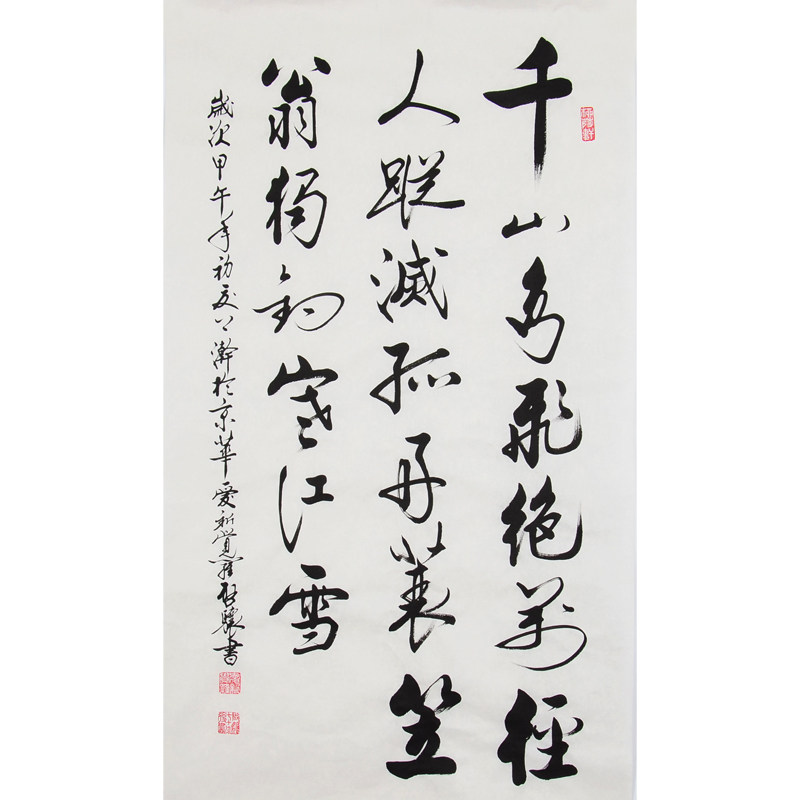 千山鳥飛絕萬徑
人蹤滅孤舟蓑笠
翁獨釣寒江雪
歲次甲午年初夏於京華愛新覺羅啟驤書